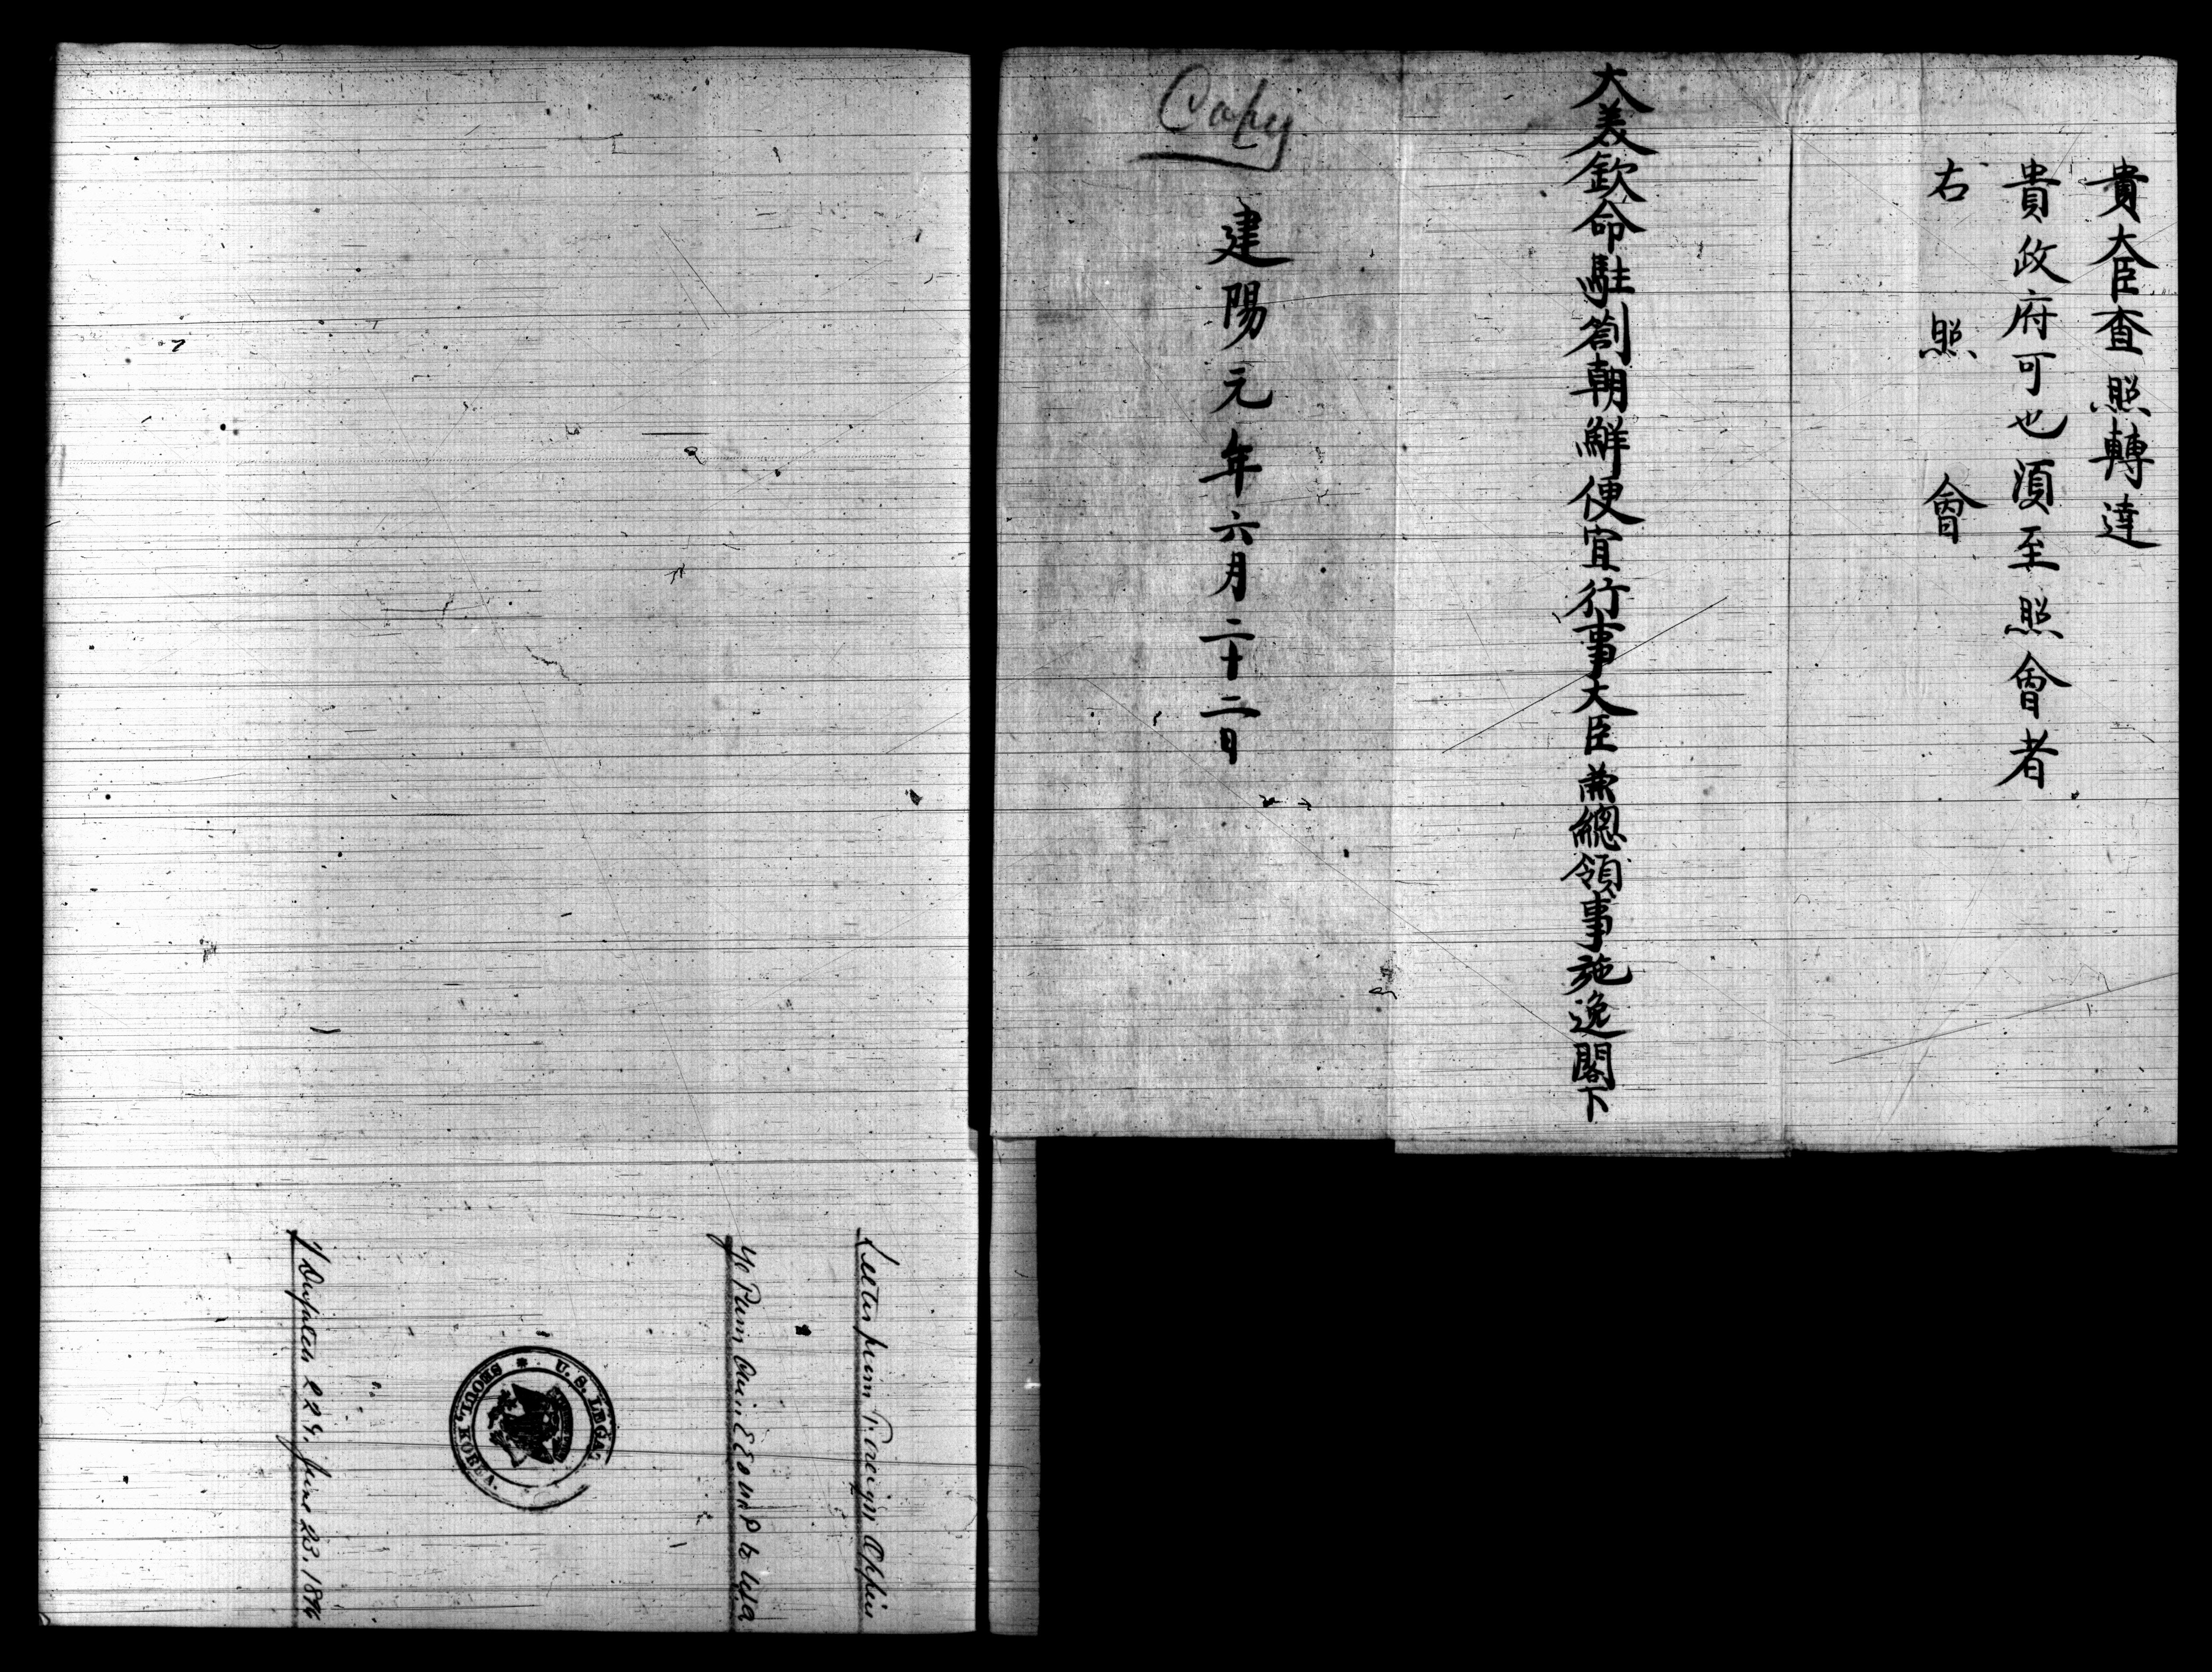 貴大臣查照轉達
貴政府可也須至照會者
右照會
大美欽命駐劄朝鮮便宜行事大臣兼總領事施逸閣下
建陽元年六月二十二日
Copy
Letter from Foreign Office
to U.S.
Dispatch 224. June 23. 1896
U. S. LEGA.
SEOUL, KOREA.